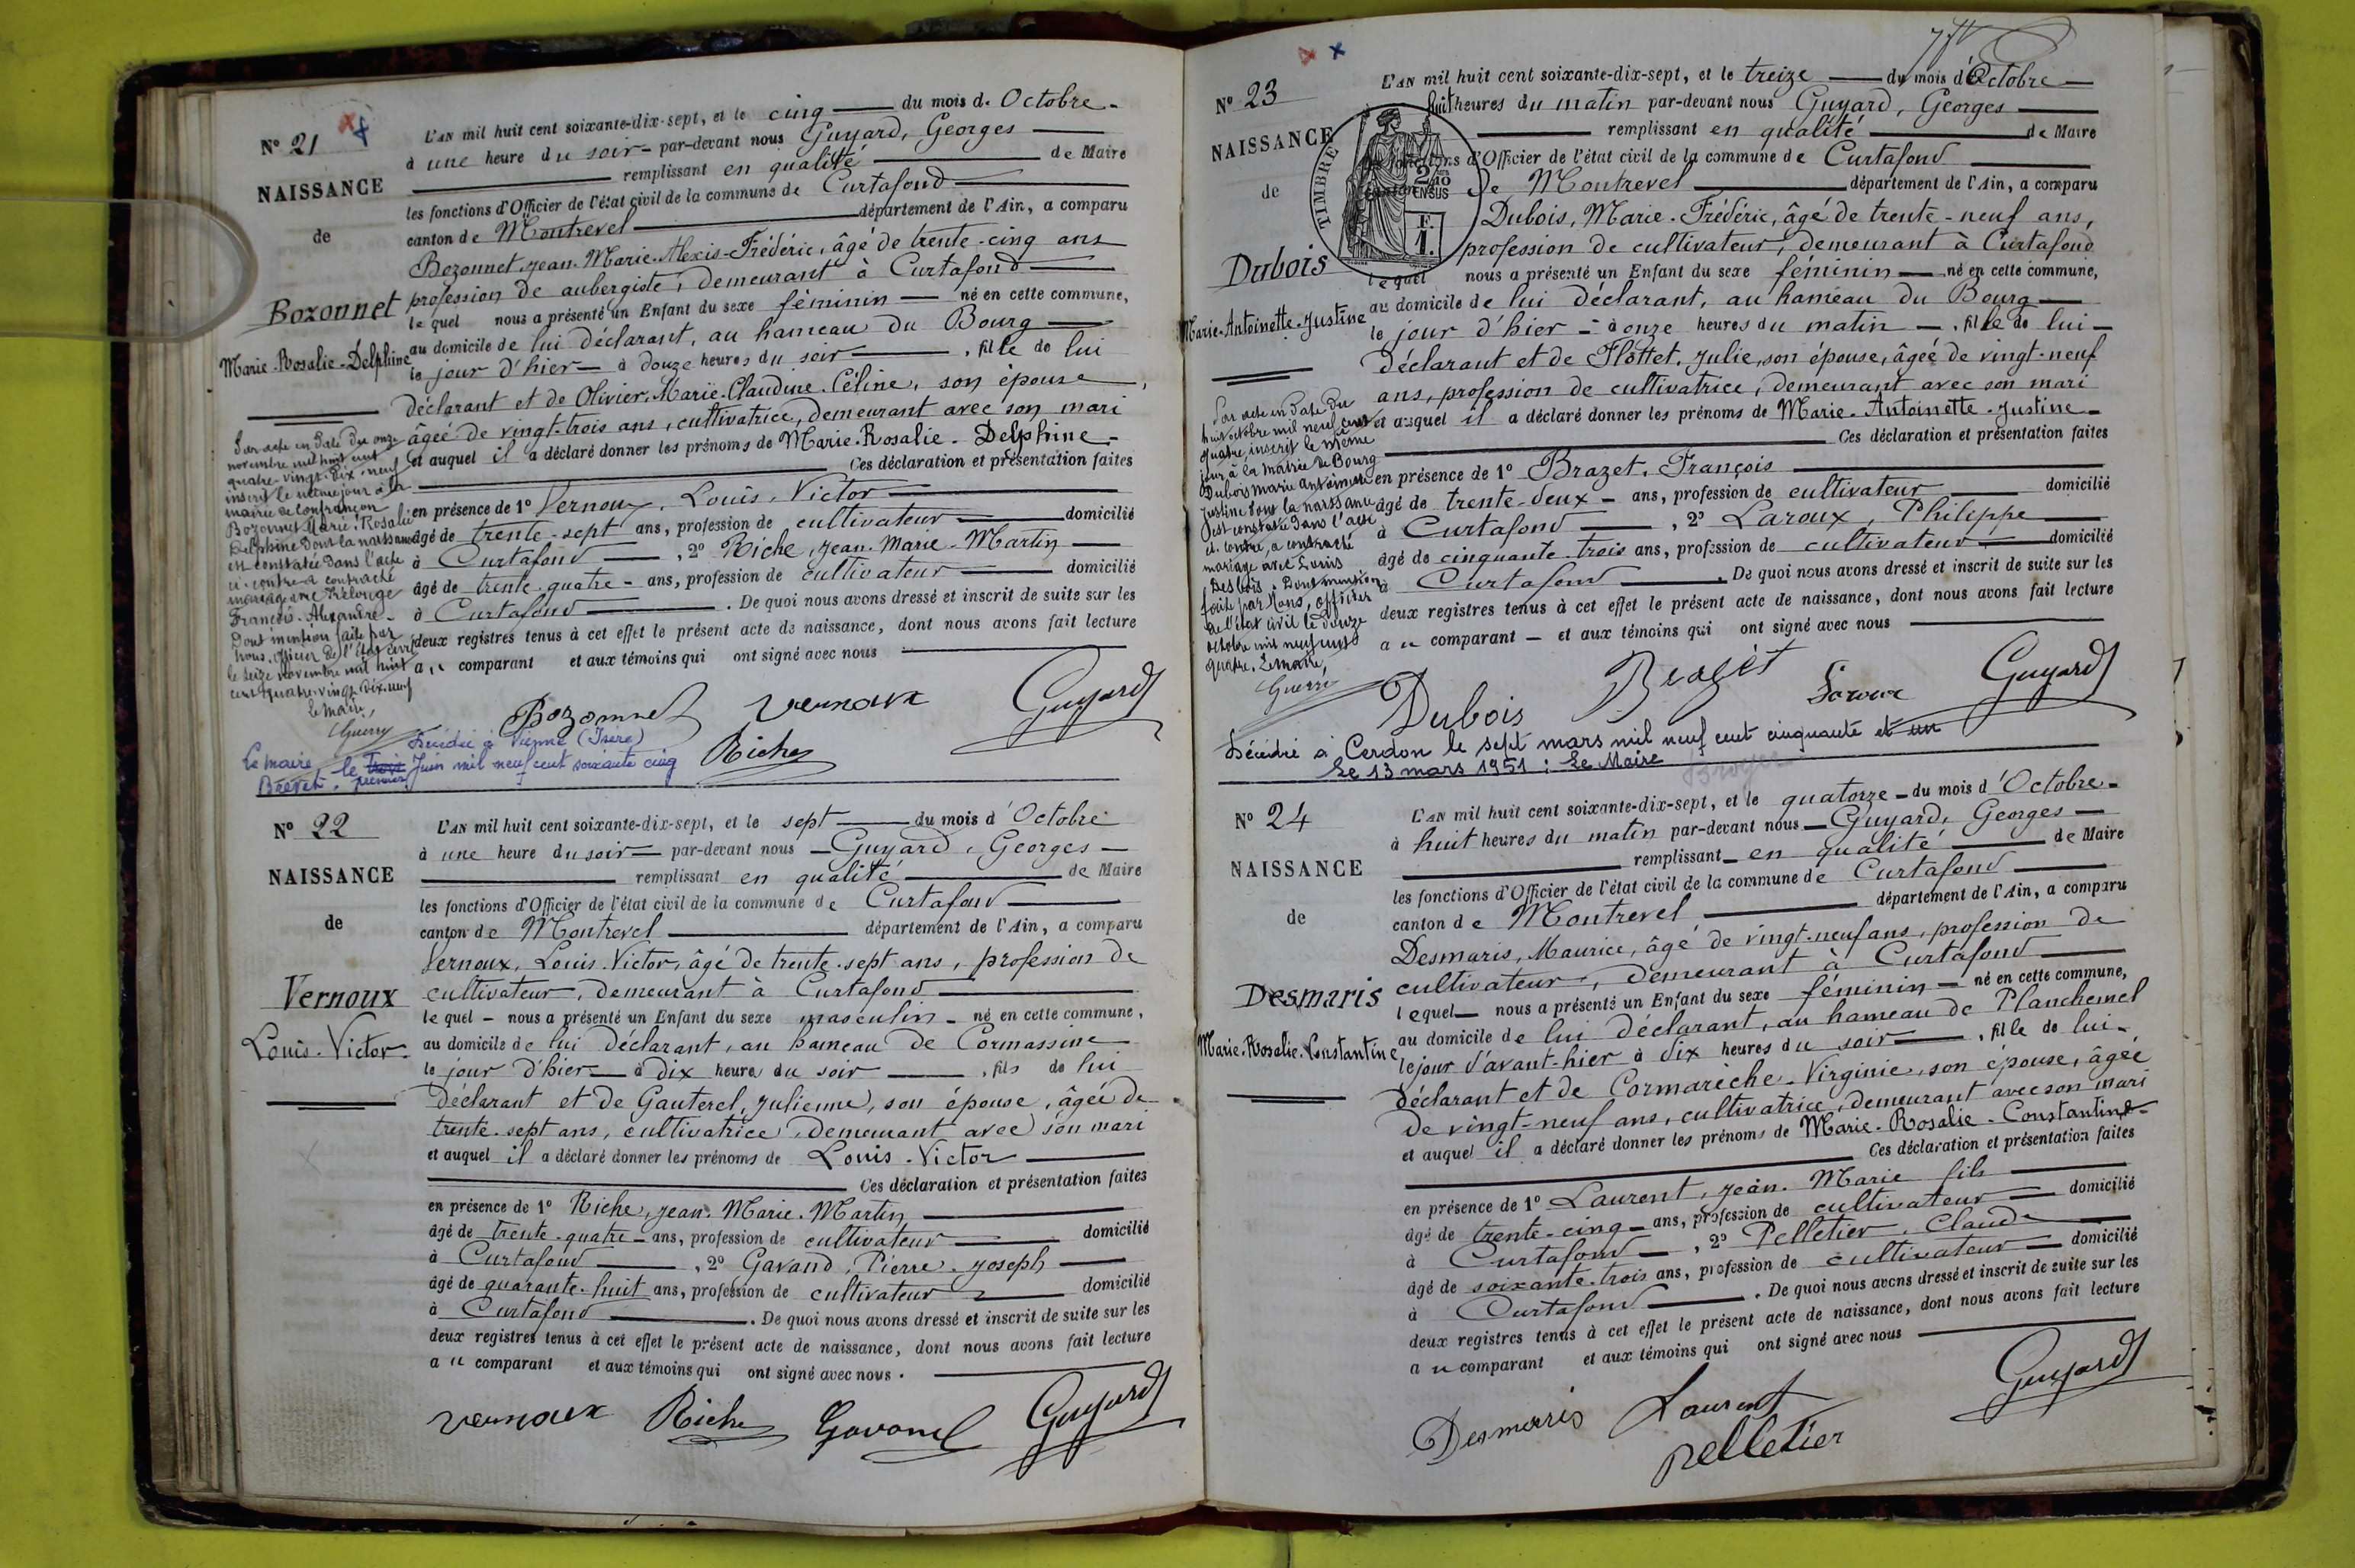 N° 21
NAISSANCE
de
Bozonnet
Marie-Rosalie-Delphine
L'AN mil huit cent soixante-dix-sept, et le cinq du mois d. Octobre
à une heure du soir par-devant nous Guyard, Georges
remplissant en qualité de Maire
les fonctions d'Officier de l'état civil de la commune de Curtafond
canton de Montrevel département de l'Ain, a comparu
Bozonnet, Jean-Marie-Alexis-Frédéric, âgé de trente-cinq ans
profession de aubergiste, demeurant à Curtafond
lequel nous a présenté un Enfant du sexe féminin né en cette commune,
au domicile de lui déclarant, au hameau du Bourg
le jour d'hier à douze heures du soir, fille de lui
déclarant et de Olivier, Marie-Claudine-Céline, son épouse,
âgée de vingt-trois ans, cultivatrice, demeurant avec son mari
et auquel il a déclaré donner les prénoms de Marie-Rosalie-Delphine
Ces déclaration et présentation faites
en présence de 1° Vernoux, Louis-Victor
âgé de trente-sept ans, profession de cultivateur domicilié
à Curtafond, 2° Riche, Jean-Marie-Martin
âgé de trente-quatre ans, profession de cultivateur domicilié
à Curtafond. De quoi nous avons dressé et inscrit de suite sur les
deux registres tenus à cet effet le présent acte de naissance, dont nous avons fait lecture
au comparant et aux témoins qui ont signé avec nous
Par acte en date du onze
novembre mil huit cent
quatre-vingt-dix-neuf
inscrit le même jour à la
mairie de Confrançon
Bozonnet Marie-Rosalie
Delphine dont la naissance
est constatée dans l'acte
ci-contre a contracté
mariage avec
François-Alexandre
Dont mention faite par
nous, officier de l'état civil
le seize novembre mil huit
cent quatre-vingt-dix-neuf
Le maire,
Guerry
Bozonnet Vernoux Guyard
Riche
Décédée à Vienne (Isère)
le trois premier Juin mil neuf cent soixante cinq
Le maire
Brevet
N° 22
NAISSANCE
de
Vernoux
Louis-Victor
L'AN mil huit cent soixante-dix-sept, et le sept du mois d'Octobre
à une heure du soir par-devant nous Guyard, Georges
remplissant en qualité de Maire
les fonctions d'Officier de l'état civil de la commune de Curtafond
canton de Montrevel département de l'Ain, a comparu
Vernoux, Louis-Victor, âgé de trente-sept ans, profession de
cultivateur, demeurant à Curtafond
lequel nous a présenté un Enfant du sexe masculin né en cette commune,
au domicile de lui déclarant, au hameau de Cormassine
le jour d'hier à dix heures du soir, fils de lui
déclarant et de Gauterel, Julienne, son épouse, âgée de
trente-sept ans, cultivatrice, demeurant avec son mari
et auquel il a déclaré donner les prénoms de Louis-Victor
Ces déclaration et présentation faites
en présence de 1° Riche, Jean-Marie-Martin
âgé de trente-quatre ans, profession de cultivateur domicilié
à Curtafond, 2° Gavand, Pierre-Joseph
âgé de quarante-huit ans, profession de cultivateur domicilié
à Curtafond. De quoi nous avons dressé et inscrit de suite sur les
deux registres tenus à cet effet le présent acte de naissance, dont nous avons fait lecture
au comparant et aux témoins qui ont signé avec nous.
Vernoux Riche Gavand Guyard
N° 23
NAISSANCE
de
Dubois
Marie-Antoinette-Justine
TIMBRE
L'AN mil huit cent soixante-dix-sept, et le treize du mois d'Octobre
huit heures du matin par-devant nous Guyard, Georges
remplissant en qualité de Maire
fonctions d'Officier de l'état civil de la commune de Curtafond
canton de Montrevel département de l'Ain, a comparu
Dubois, Marie-Frédéric, âgé de trente-neuf ans,
profession de cultivateur, demeurant à Curtafond
lequel nous a présenté un Enfant du sexe féminin né en cette commune,
au domicile de lui déclarant, au hameau du Bourg
le jour d'hier à onze heures du matin, fille de lui
déclarant et de Flottet, Julie, son épouse, âgée de vingt-neuf
ans, profession de cultivatrice, demeurant avec son mari
et auquel il a déclaré donner les prénoms de Marie-Antoinette-Justine
Ces déclaration et présentation faites
en présence de 1° Brazet, François
âgé de trente-deux ans, profession de cultivateur domicilié
à Curtafond, 2° Laroux, Philippe
âgé de cinquante-trois ans, profession de cultivateur domicilié
à Curtafond. De quoi nous avons dressé et inscrit de suite sur les
deux registres tenus à cet effet le présent acte de naissance, dont nous avons fait lecture
au comparant et aux témoins qui ont signé avec nous
Par acte en date du
huit octobre mil neuf cent
quatre, inscrit le même
jour à la mairie de Bourg
Dubois Marie Antoinette
Justine dont la naissance
est constatée dans l'acte
ci-contre, a contracté
mariage avec Louis
Desbois. Dont mention
faite par Nous, officier
de l'état civil le douze
octobre mil neuf cent
quatre. Le maire,
Guerry
Dubois Guyard
Décédée à Cerdon le sept mars mil neuf cent cinquante et un
Le 13 mars 1951 : Le Maire
N° 24
NAISSANCE
de
Desmaris
Marie-Rosalie-Constantine
L'AN mil huit cent soixante-dix-sept, et le quatorze du mois d'Octobre
à huit heures du matin par-devant nous Guyard, Georges
remplissant en qualité de Maire
les fonctions d'Officier de l'état civil de la commune de Curtafond
canton de Montrevel département de l'Ain, a comparu
Desmaris, Maurice, âgé de vingt-neuf ans, profession de
cultivateur, demeurant à Curtafond
lequel nous a présenté un Enfant du sexe féminin né en cette commune,
au domicile de lui déclarant, au hameau de Planchemel
le jour d'avant-hier à dix heures du soir, fille de lui
déclarant et de Cormarèche-Virginie, son épouse, âgée
de vingt-neuf ans, cultivatrice, demeurant avec son mari
et auquel il a déclaré donner les prénoms de Marie-Rosalie-Constantine
Ces déclaration et présentation faites
en présence de 1° Laurent, Jean-Marie fils
âgé de trente-cinq ans, profession de cultivateur domicilié
à Curtafond, 2° Pelletier, Claude
âgé de soixante-trois ans, profession de cultivateur domicilié
à Curtafond. De quoi nous avons dressé et inscrit de suite sur les
deux registres tenus à cet effet le présent acte de naissance, dont nous avons fait lecture
au comparant et aux témoins qui ont signé avec nous
Desmaris Laurent Guyard
Pelletier